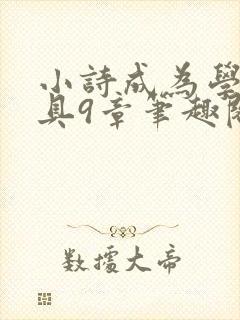 小詩成為學
具9章筆趣閣
数據大帝